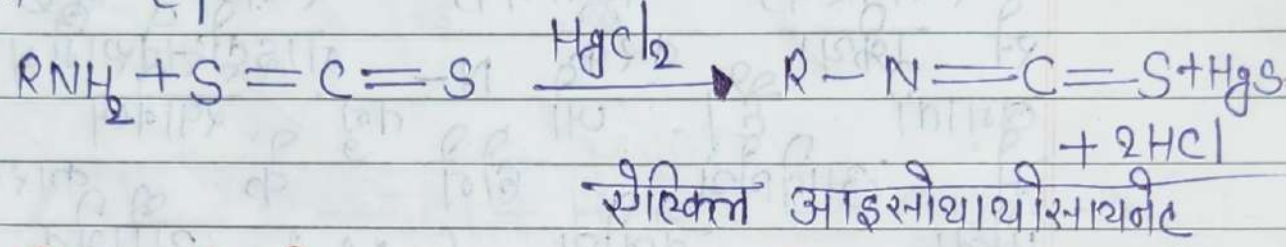 RNH₂ + S = C = S —HgCl₂→ R – N = C = S + HgS
+ 2HCl
ऐल्किल आइसोथायोसायनेट